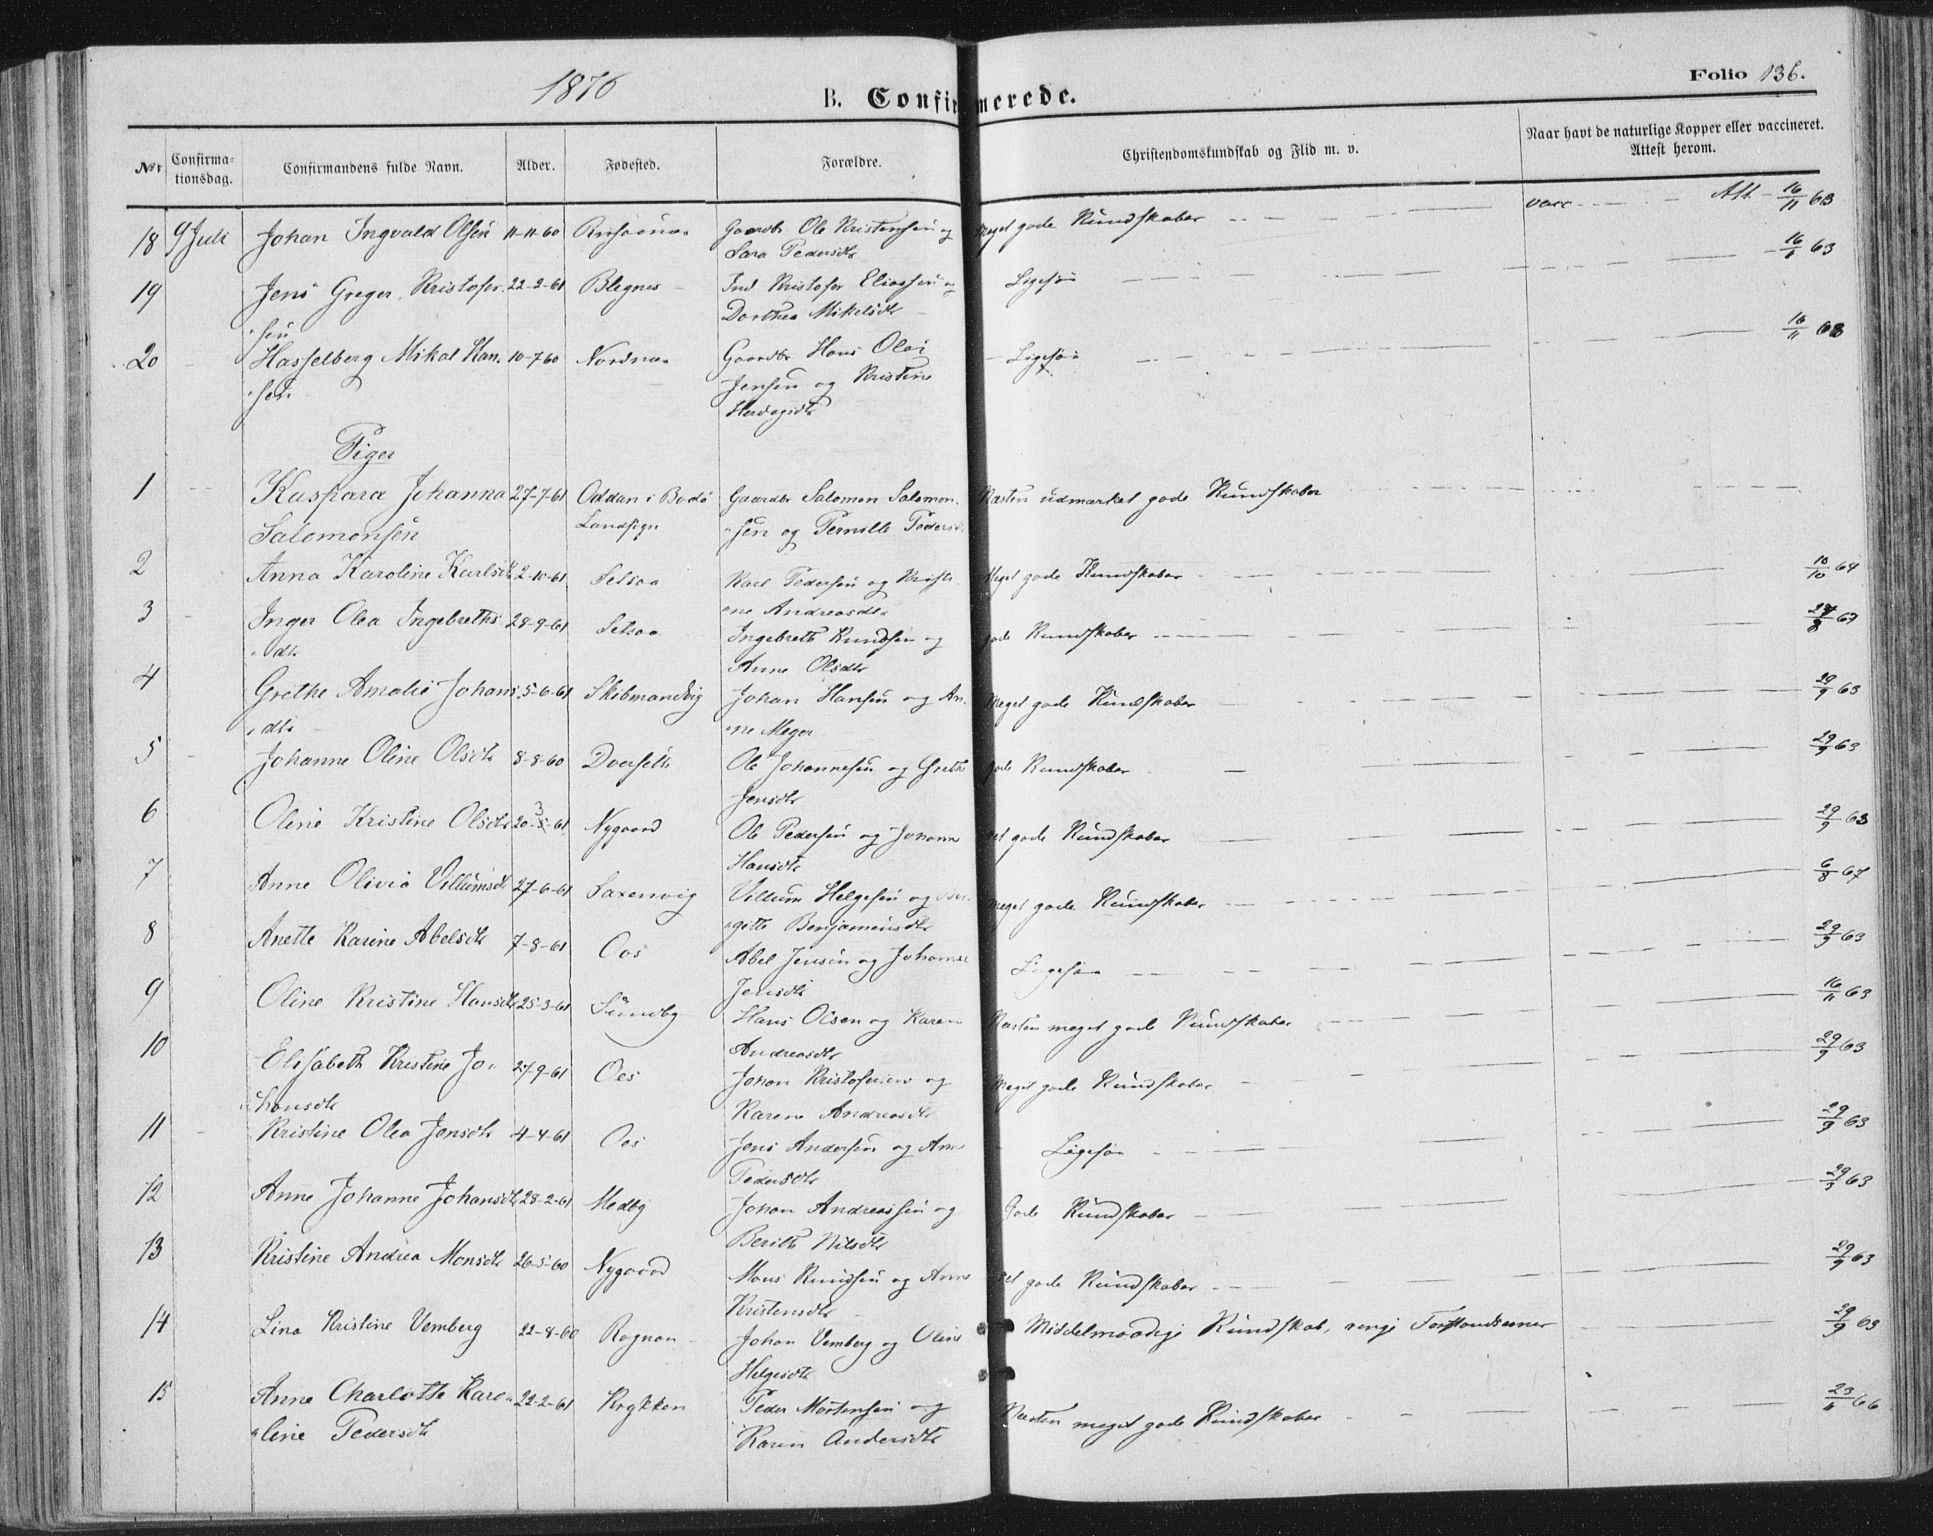 1876
B. Confirmerede.
Folio 136.
No
Confirma-
tionsdag.
Confirmandens fulde Navn.
Alder.
Fødested.
Forældre.
Christendomskundskab og Flid m. v.
Naar havt de naturlige Kopper eller vaccineret.
Attest herom.
18 9 Juli Johan Ingvald Olsen 11-11-60 Gaardbr Ole Kristensen og Meget gode Kundskaber vacc Att 16/11 63
Sara Pedersdtr
19 Jens Greger Kristofer 22-2-61 Blegnes Ind Kristofer Eliassen og Ligesaa 16/11 63
sen Dorthea Mikelsdtr
20 Hasselberg Mikal Han 10-7-60 Nordnes Gaardbr Hans Olai Ligesaa 16/11 63
sen Jensen og Kristine
Piger
1 Kaspara Johanna 27-7-61 Oddan i Bodø Gaardbr Salomon Salomon Næsten udmærket gode Kundskaber
Salomonsen Landsogn sen og Pernille Pedersdtr
2 Anna Karoline Karlsdtr 2-10-61 Setsaa Karl Pedersen og Kristi Meget gode Kundskaber 10/10 64
ne Andreasdtr
3 Inger Olea Ingebreths 28-9-61 Setsaa Ingebreth Knudsen og gode Kundskaber
dtr Anne Olsdtr
4 Grethe Amalie Johans 5-6-61 Skibmandvig Johan Hansen og An Meget gode Kundskaber 29/9 63
dtr ne Meyer
5 Johanne Oline Olsdtr 8-8-60 Dverseth Ole Johannesen og Grethe gode Kundskaber 29/9 63
Jensdtr
6 Oline Kristine Olsdtr 20-3-61 Nygaard Ole Pedersen og Johanne gode Kundskaber 29/9 63
Hansdtr
7 Anne Olivia Villumsdtr 27-6-61 Saxenvig Villum Helgesen og Ber Meget gode Kundskaber 6/8 67
gitte Benjaminsdtr
8 Anette Karine Abelsdtr 7-8-61 Oes Abel Jensen og Johanne Ligesaa 29/9 63
Jonsdtr
9 Oline Kristine Hansdtr 25-3-61 Sundby Hans Olsen og Karen Næsten meget gode Kundskaber 16/11 63
Andreasdtr
10 Elisabeth Kristine Jo 27-9-61 Oes Johan Kristofersen og Meget gode Kundskaber 29/9 63
hansdtr Karen Andreasdtr
11 Kristine Olea Jensdtr 4-4-61 Oes Jens Andersen og Anne Ligesaa 29/9 63
Pedersdtr
12 Anne Johanne Johansdtr 28-2-61 Medby Johan Andreassen og Gode Kundskaber 29/9 63
Berith Nilsdtr
13 Kristine Andrea Monsdtr 26-5-60 Nygaard Mons Knudsen og Anne gode Kundskaber 29/9 63
Kristensdtr
14 Lina Kristine Vemberg 22-8-60 Rognan Johan Vemberg og Oline Middelmaadige Kundskab, ringe Forstandsevner 29/9 63
Helgesdtr
15 Anne Charlotte Karo 22-2-61 Krykken Peder Mortensen og Næsten meget gode Kundskaber
line Pedersdtr Karen Andersdtr